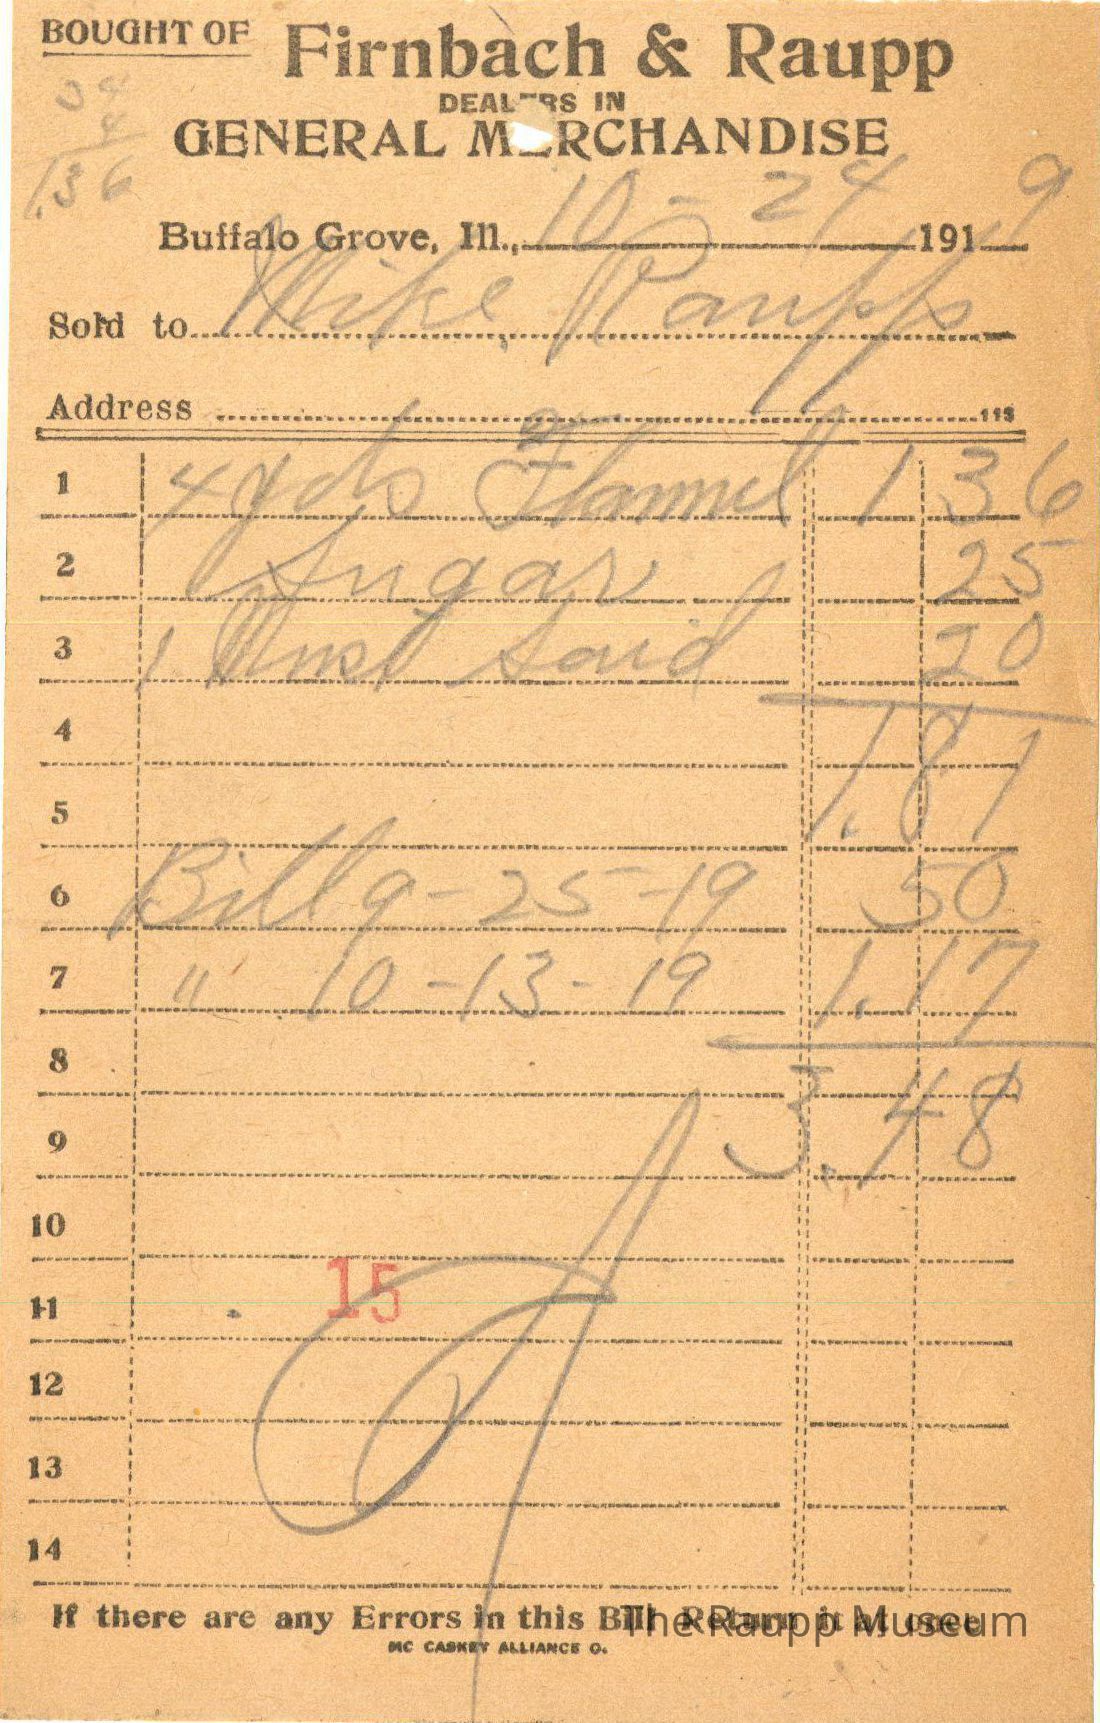 BOUGHT OF Firnbach & Raupp
DEALERS IN
GENERAL MERCHANDISE
34
4
1.36
Buffalo Grove, Ill., 10 - 24 1919
Sold to Mike Raupp
Address
113
1 4 yds Flannel 1 36
2 Sugar 25
3 1 Must Said 20
4
1.81
5
6 Bill 9-25-19 50
7 " 10-13-19 1.17
8
3.48
9
10
11 15
12
13
14
If there are any Errors in this Bill Return it at once
The Raupp Museum
MC CASKEY ALLIANCE O.